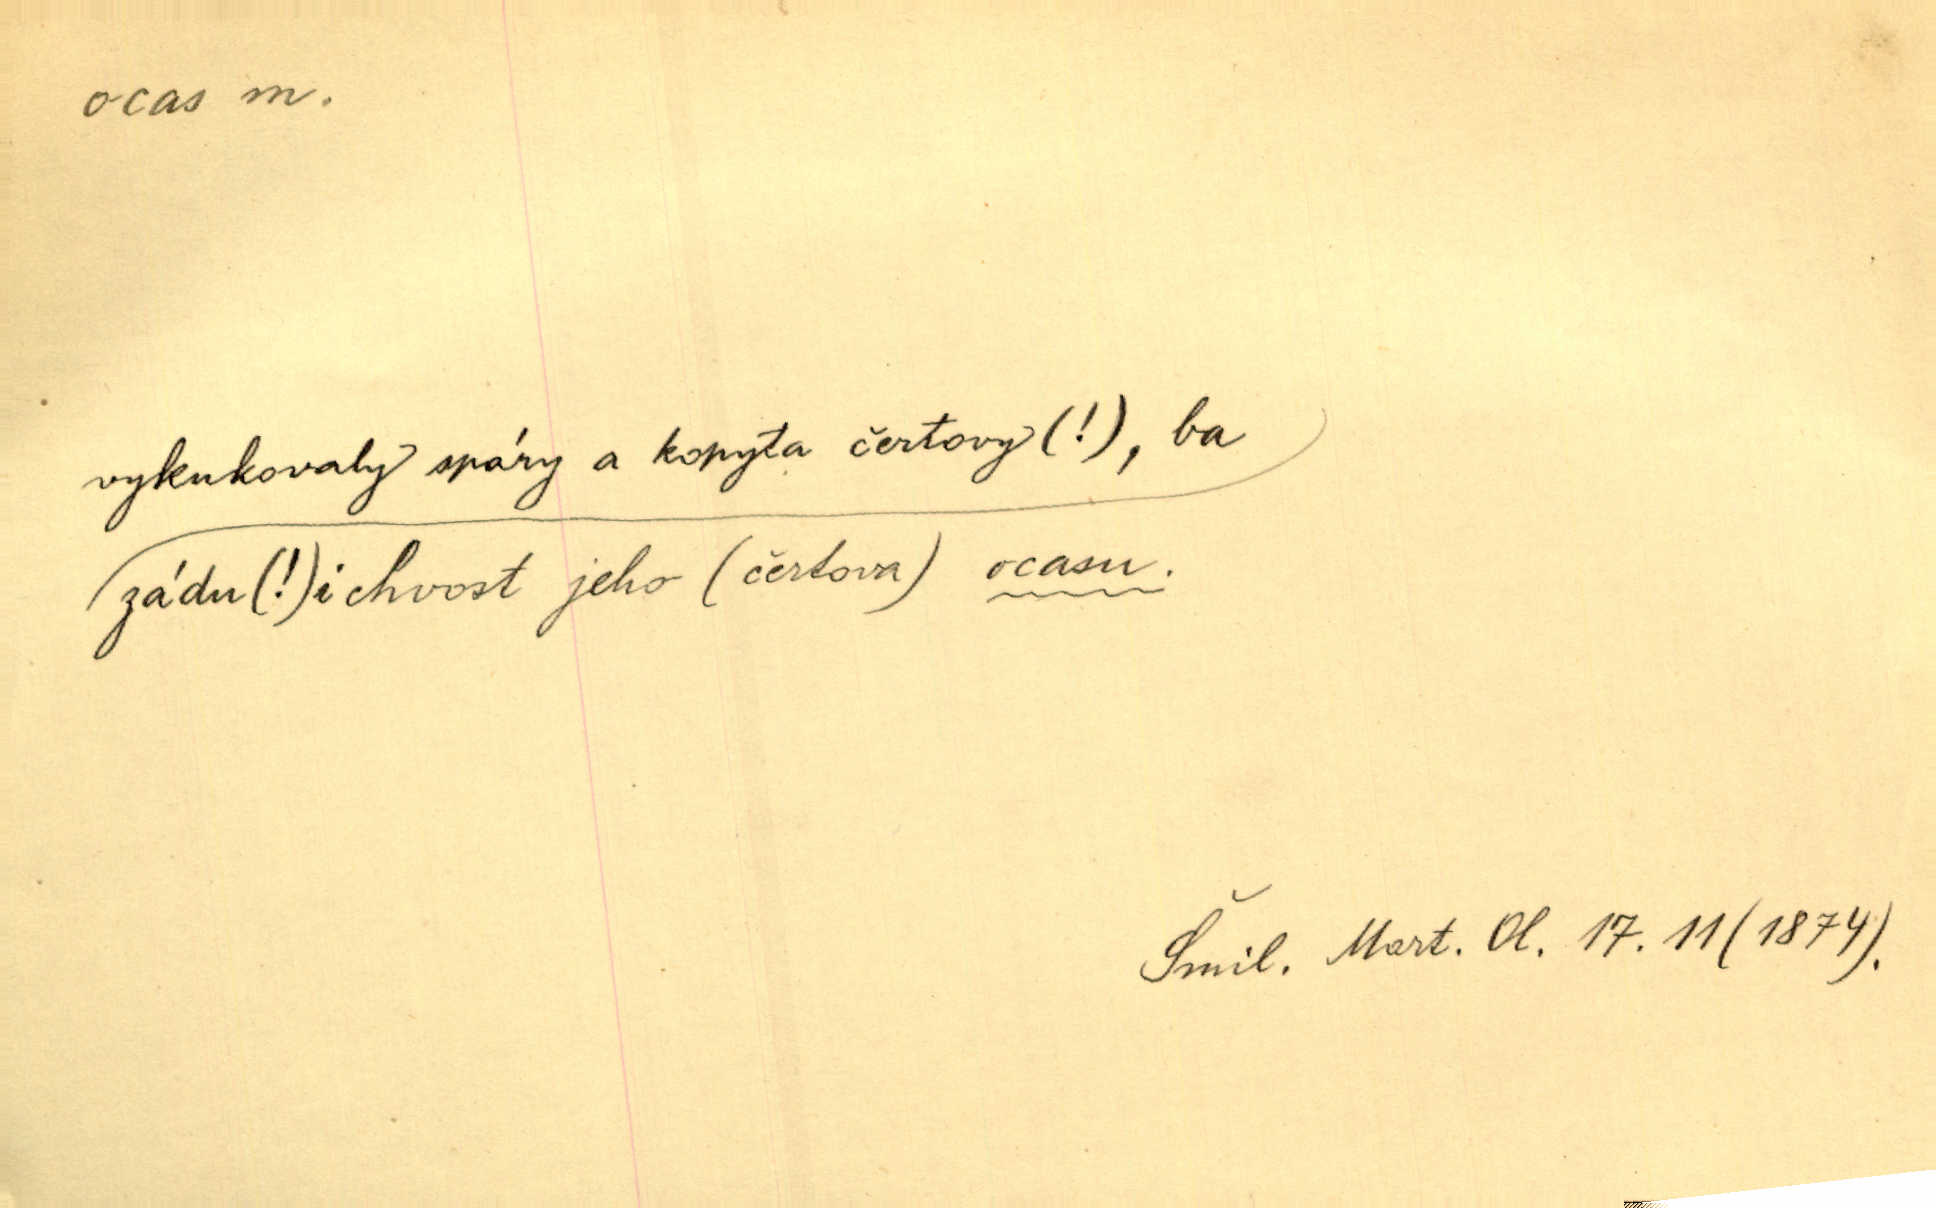 ocas m.
vykukovaly spáry a kopyta čertovy (!), ba
zádu (!) i chvost jeho (čertova) ocasu.
Šmil. Mart. Ol. 17. 11 (1874).